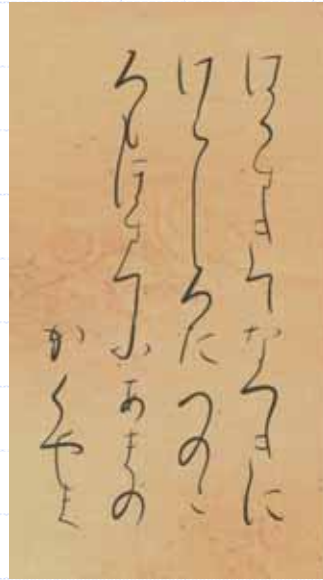 はるすきてなつきに
けらししろたへのこ
ろもほすてふあまの
かくやま